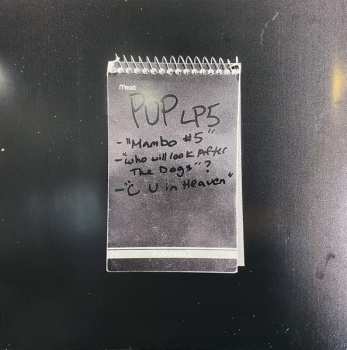 Mead
PUP LP5
- "Mambo #5"
- "Who will look After
The Dogs"?
- "C U in Heaven"